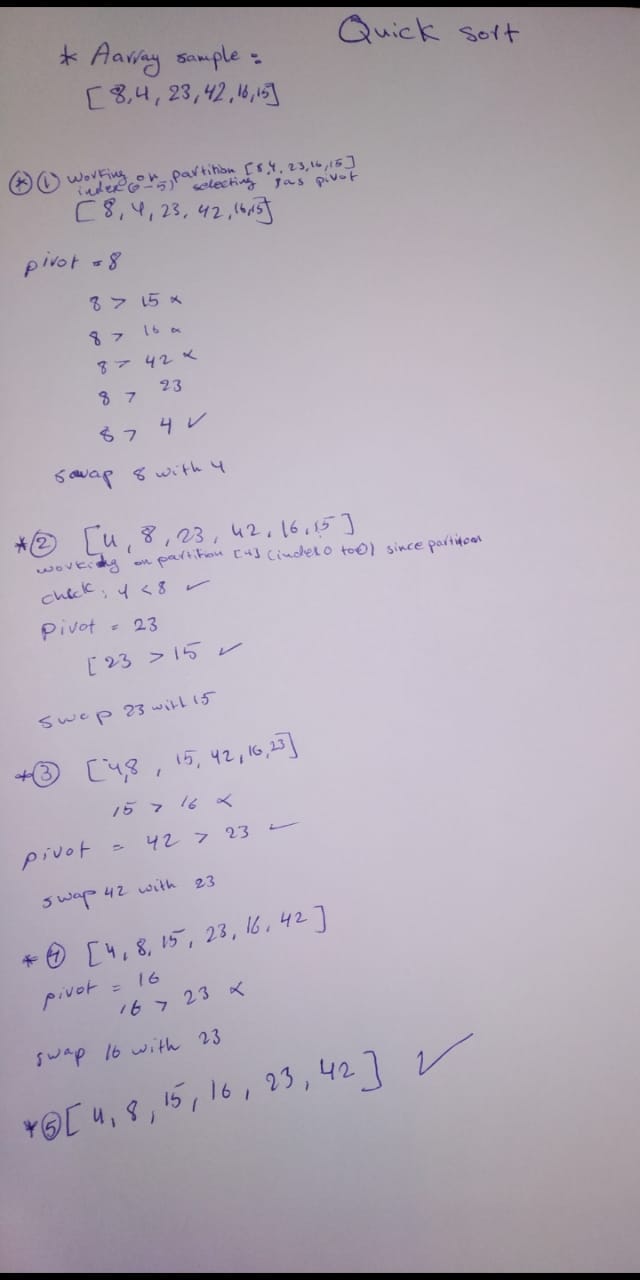 Quick sort
* Aarray sample :
[ 8,4, 23,42,16,15]
* ① working on partition [8,4, 23,16,15]
index(0-5) selecting 8 as pivot
[ 8, 4, 23, 42, 16,15]
pivot = 8
8 > 15 x
8 > 16 x
8 > 42 x
8 > 23
8 > 4 ✓
swap 8 with 4
*② [4, 8, 23, 42, 16, 15]
working on partition [4] (index 0 to 0) since partition
check: 4 < 8 ✓
pivot = 23
[ 23 > 15 ✓
swap 23 with 15
*③ [4,8, 15, 42, 16, 23]
15 > 16 x
pivot = 42 > 23 ✓
swap 42 with 23
*④ [4, 8, 15, 23, 16, 42]
pivot = 16
16 > 23 x
swap 16 with 23
*⑤ [4, 8, 15, 16, 23, 42] ✓